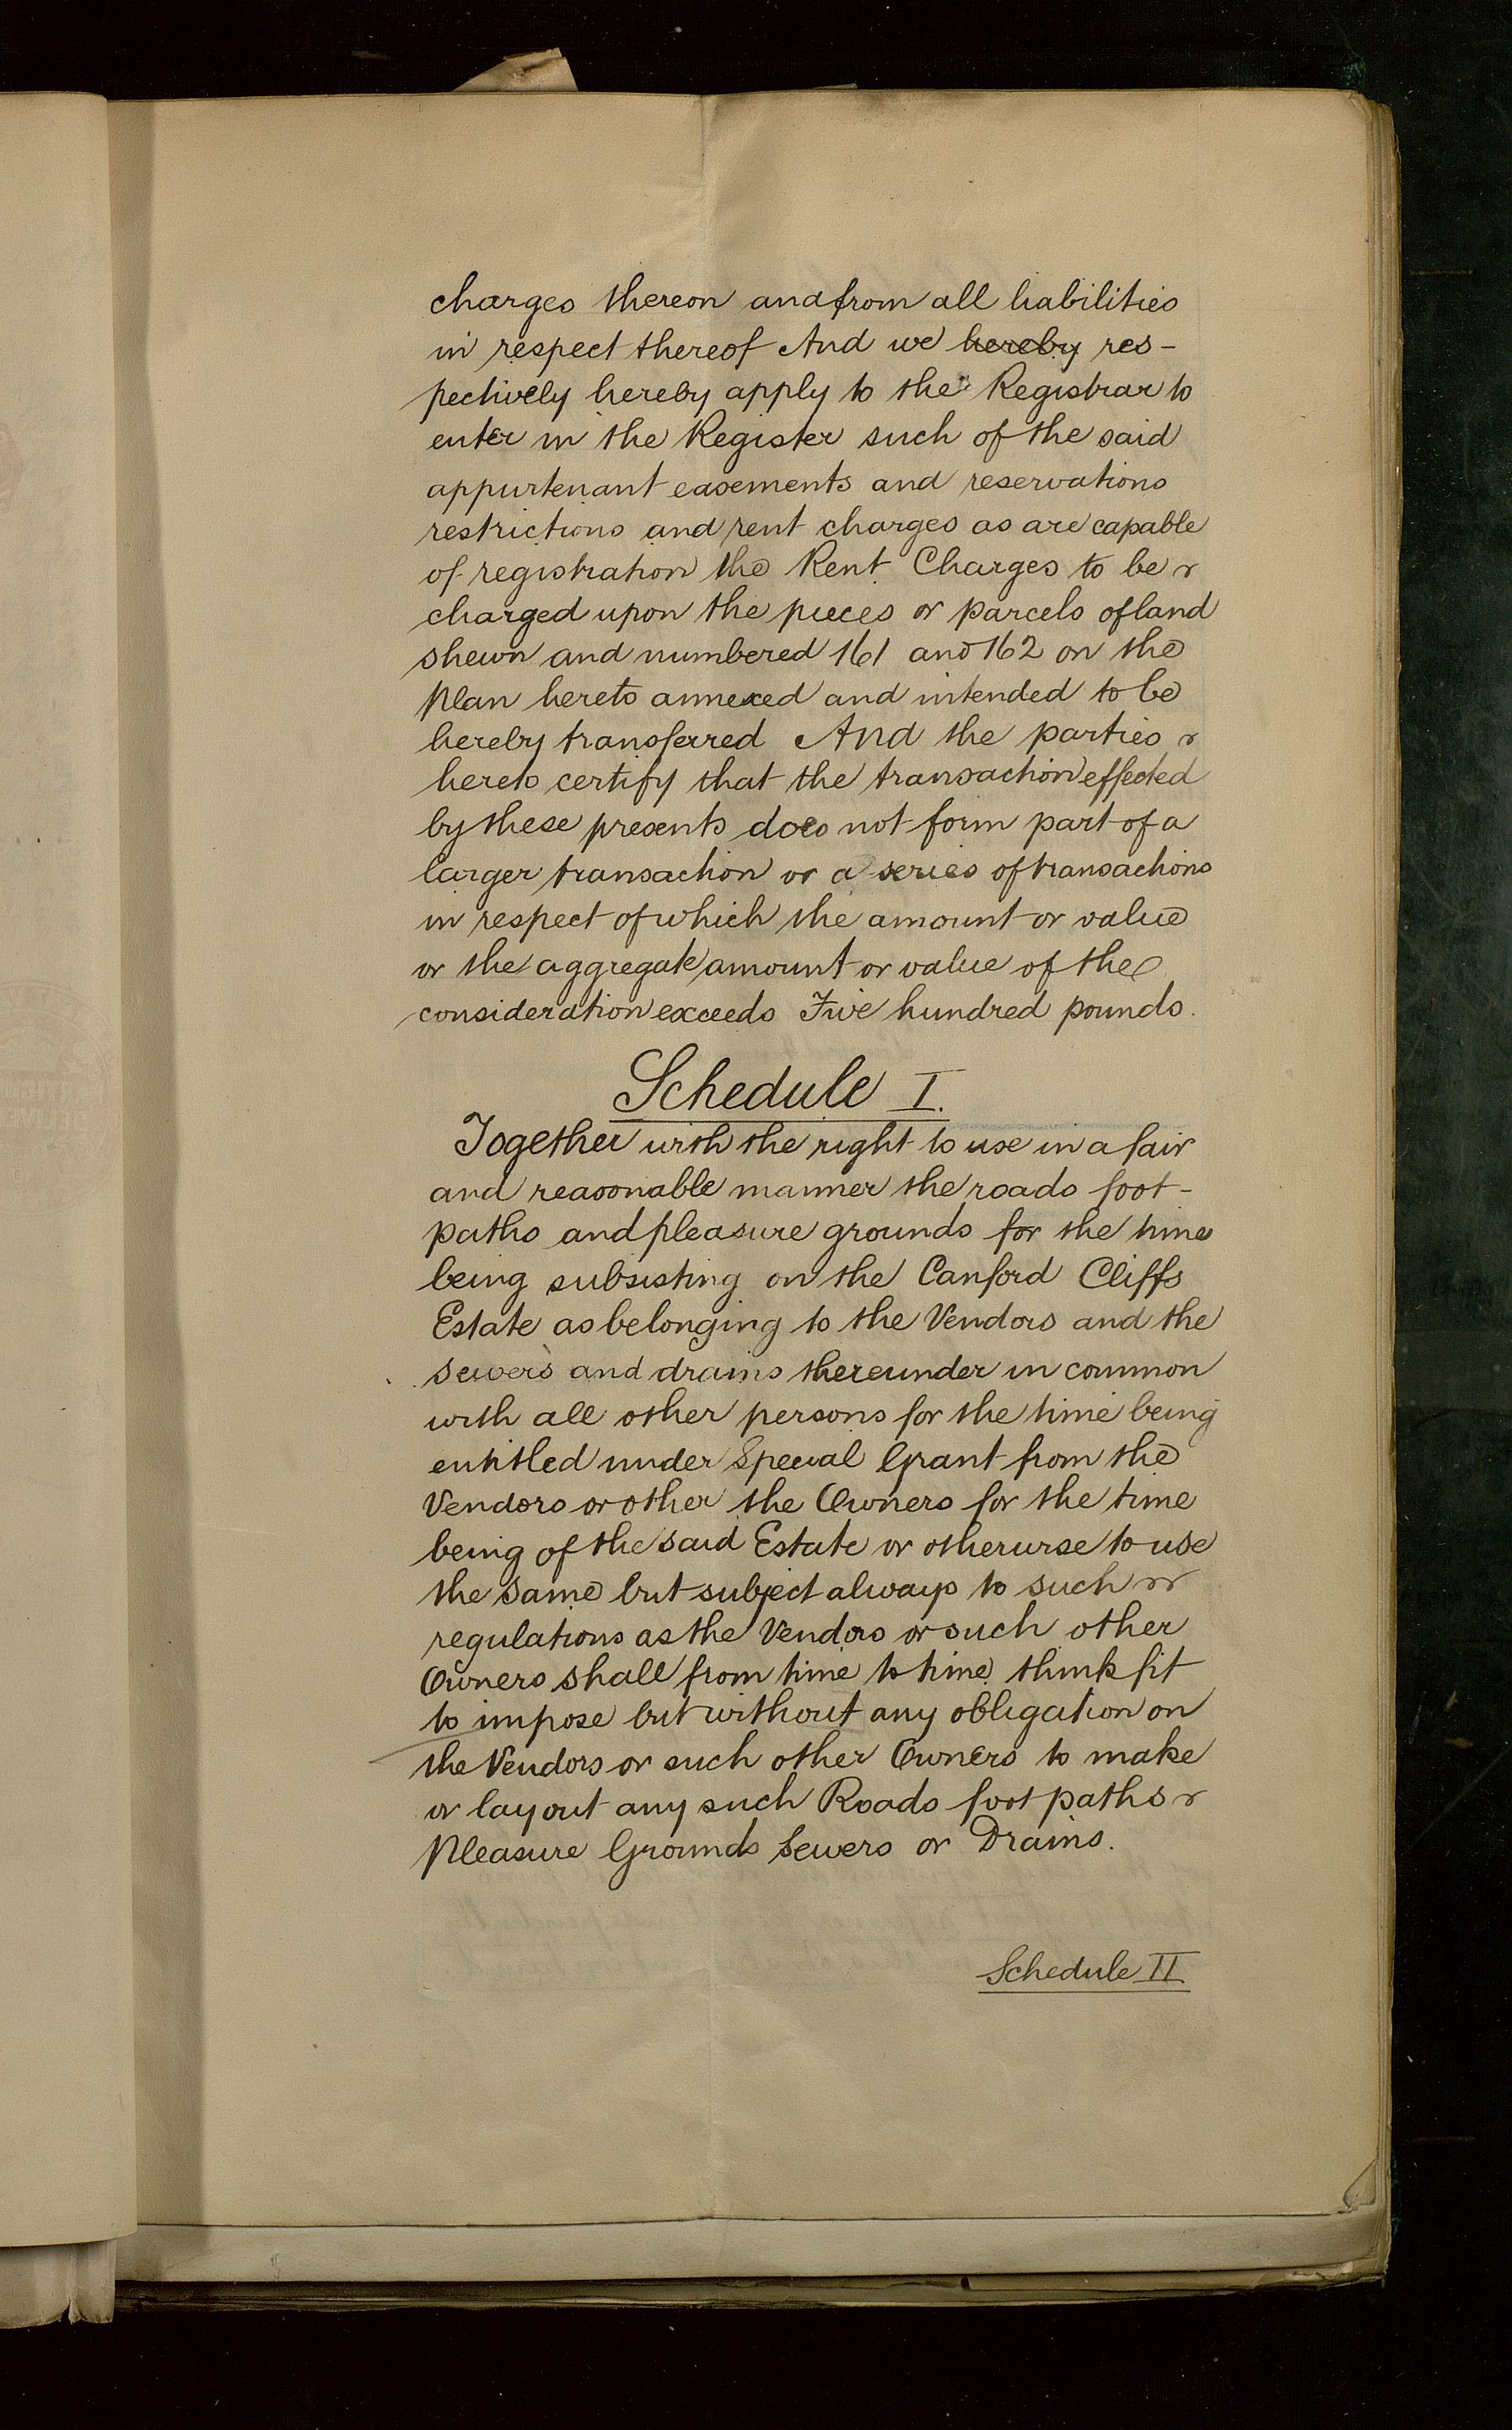 charges thereon and from all liabilities
in respect thereof And we hereby res-
pectively hereby apply to the Registrar to
enter in the Register such of the said
appurtenant easements and reservations
restrictions and rent charges as are capable
of registration the Rent Charges to be
charged upon the pieces or parcels of land
shewn and numbered 161 and 162 on the
Plan hereto annexed and intended to be
hereby transferred And the parties
hereto certify that the transaction effected
by these presents does not form part of a
larger transaction or a series of transactions
in respect of which the amount or value
or the aggregate amount or value of the
consideration exceeds Five hundred pounds.
Schedule I.
Together with the right to use in a fair
and reasonable manner the roads foot-
paths and pleasure grounds for the time
being subsisting on the Canford Cliffs
Estate as belonging to the Vendors and the
sewers and drains thereunder in common
with all other persons for the time being
entitled under Special Grant from the
Vendors or other the Owners for the time
being of the said Estate or otherwise to use
the same but subject always to such
regulations as the Vendors or such other
Owners shall from time to time think fit
to impose but without any obligation on
the Vendors or such other Owners to make
or lay out any such Roads foot paths
Pleasure Grounds Sewers or Drains.
Schedule II